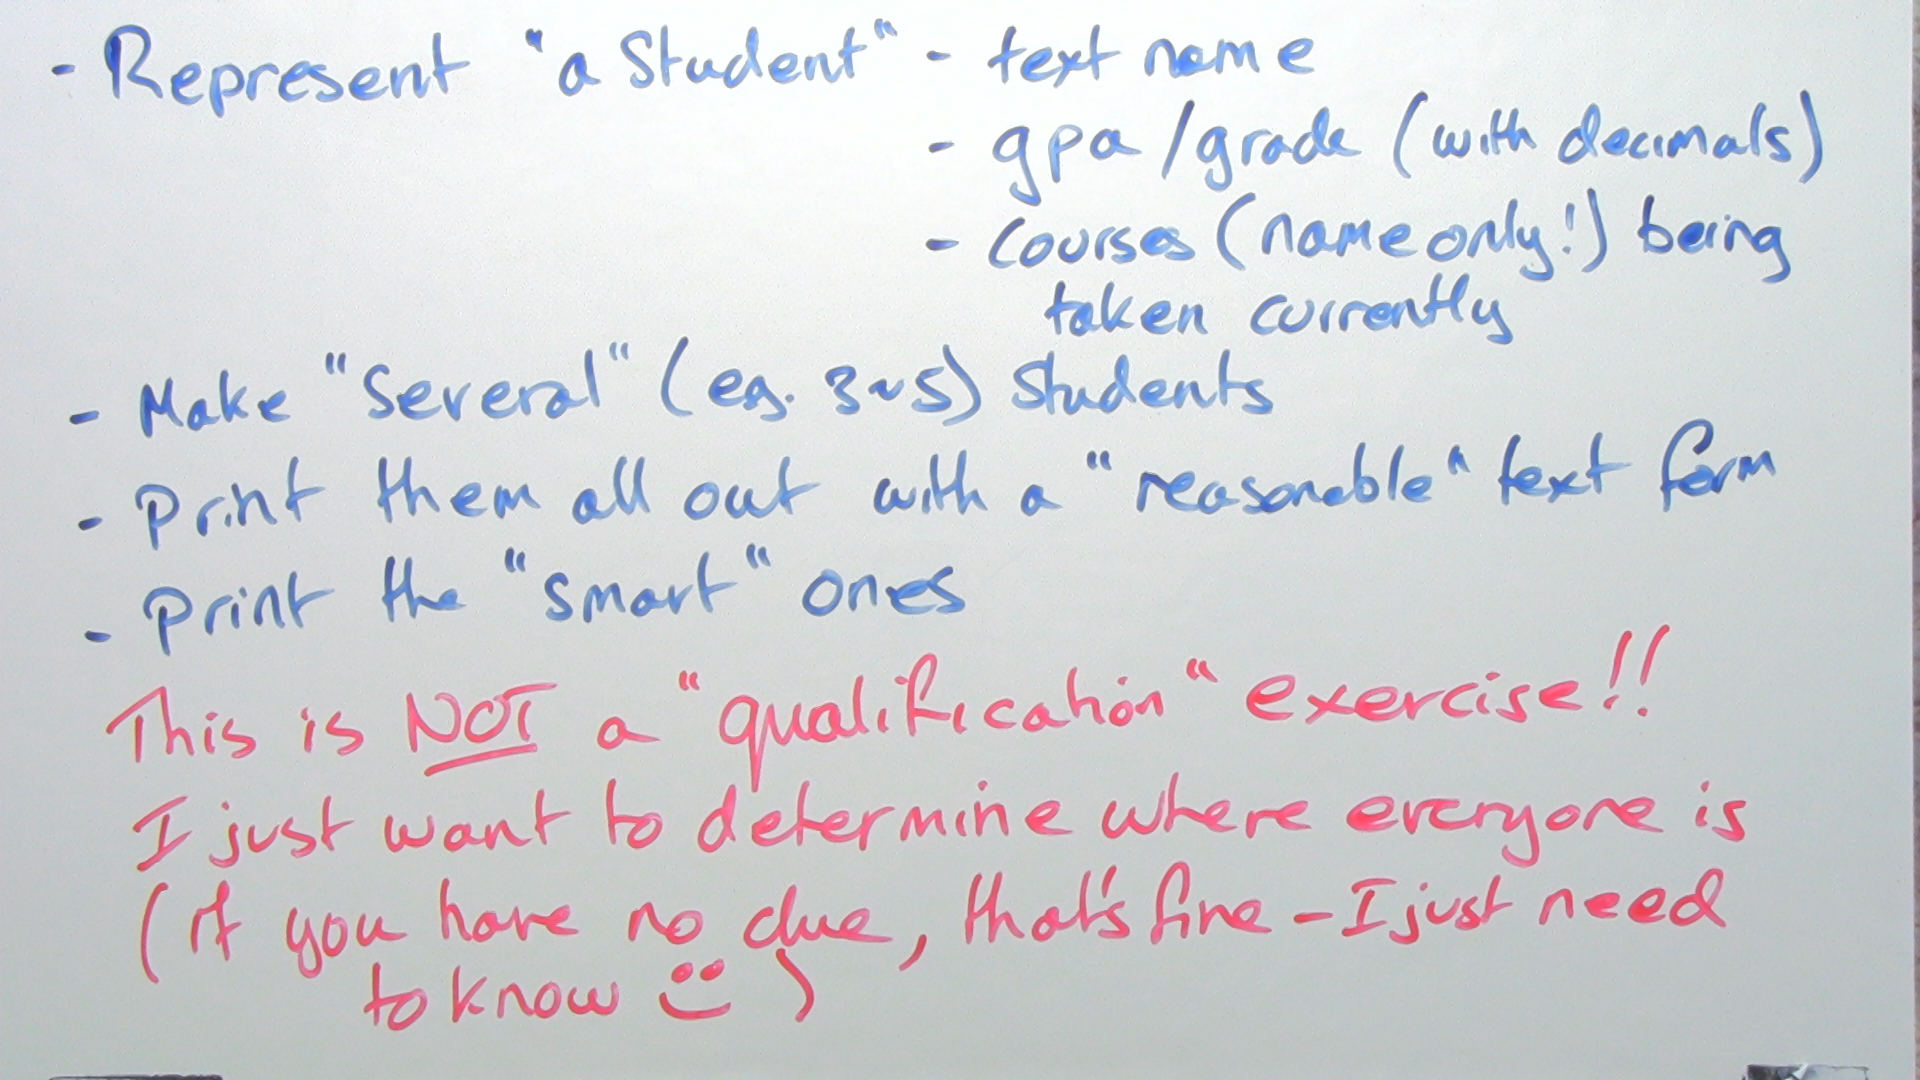 - Represent "a Student" - text name
- gpa / grade (with decimals)
- courses (name only!) being
taken currently
- Make "Several" (eg. 3~5) Students
- Print them all out with a "reasonable" text form
- Print the "smart" ones
This is NOT a "qualification" exercise!!
I just want to determine where everyone is
(if you have no clue, that's fine - I just need
to know :))